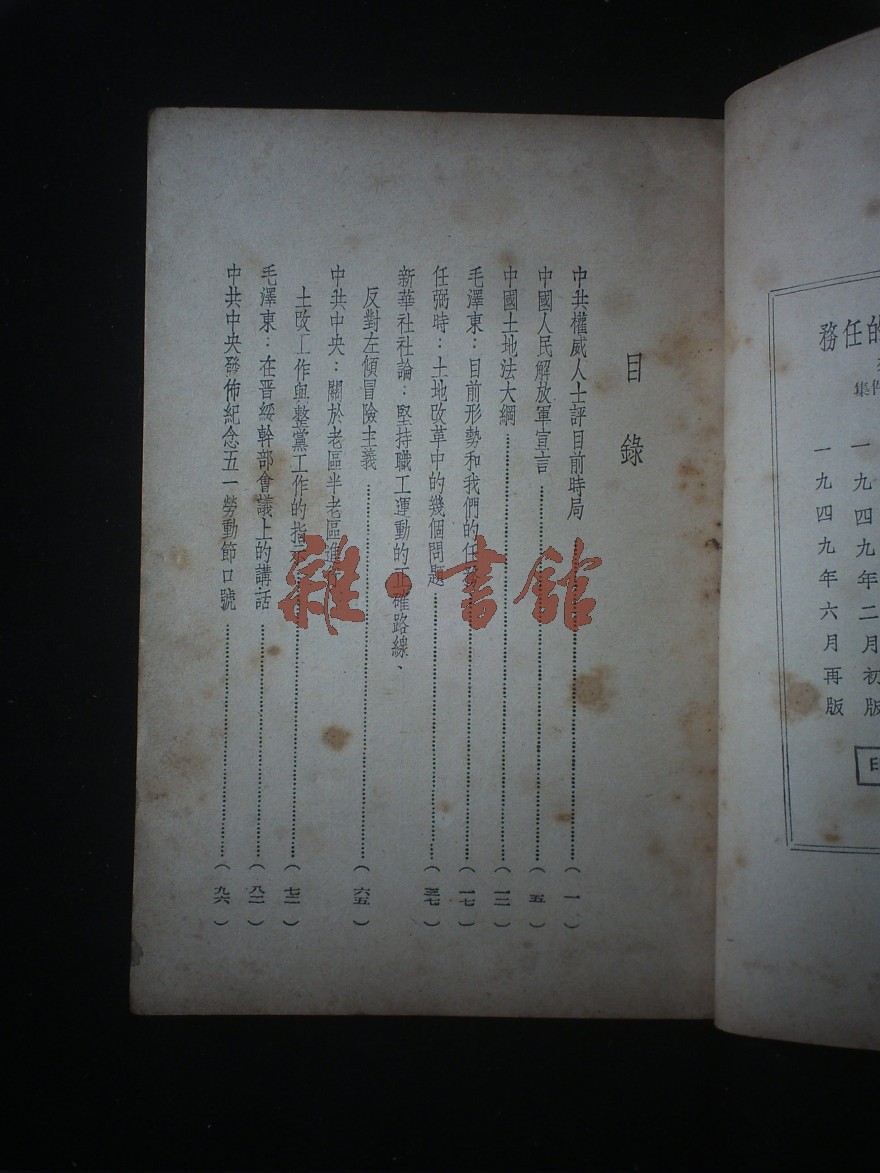 的任務
集
一九四九年二月初版
一九四九年六月再版
目錄
中共權威人士評目前時局……(一)
中國人民解放軍宣言……(五)
中國土地法大綱……(一二)
毛澤東：目前形勢和我們的任……(一七)
任弼時：土地改革中的幾個問題……(三七)
新華社社論：堅持職工運動的正確路線、
反對左傾冒險主義……(六五)
中共中央：關於老區半老區進
土改工作與整黨工作的指示……(七二)
毛澤東：在晋綏幹部會議上的講話……(八二)
中共中央發佈紀念五一勞動節口號……(九六)
雜·書館